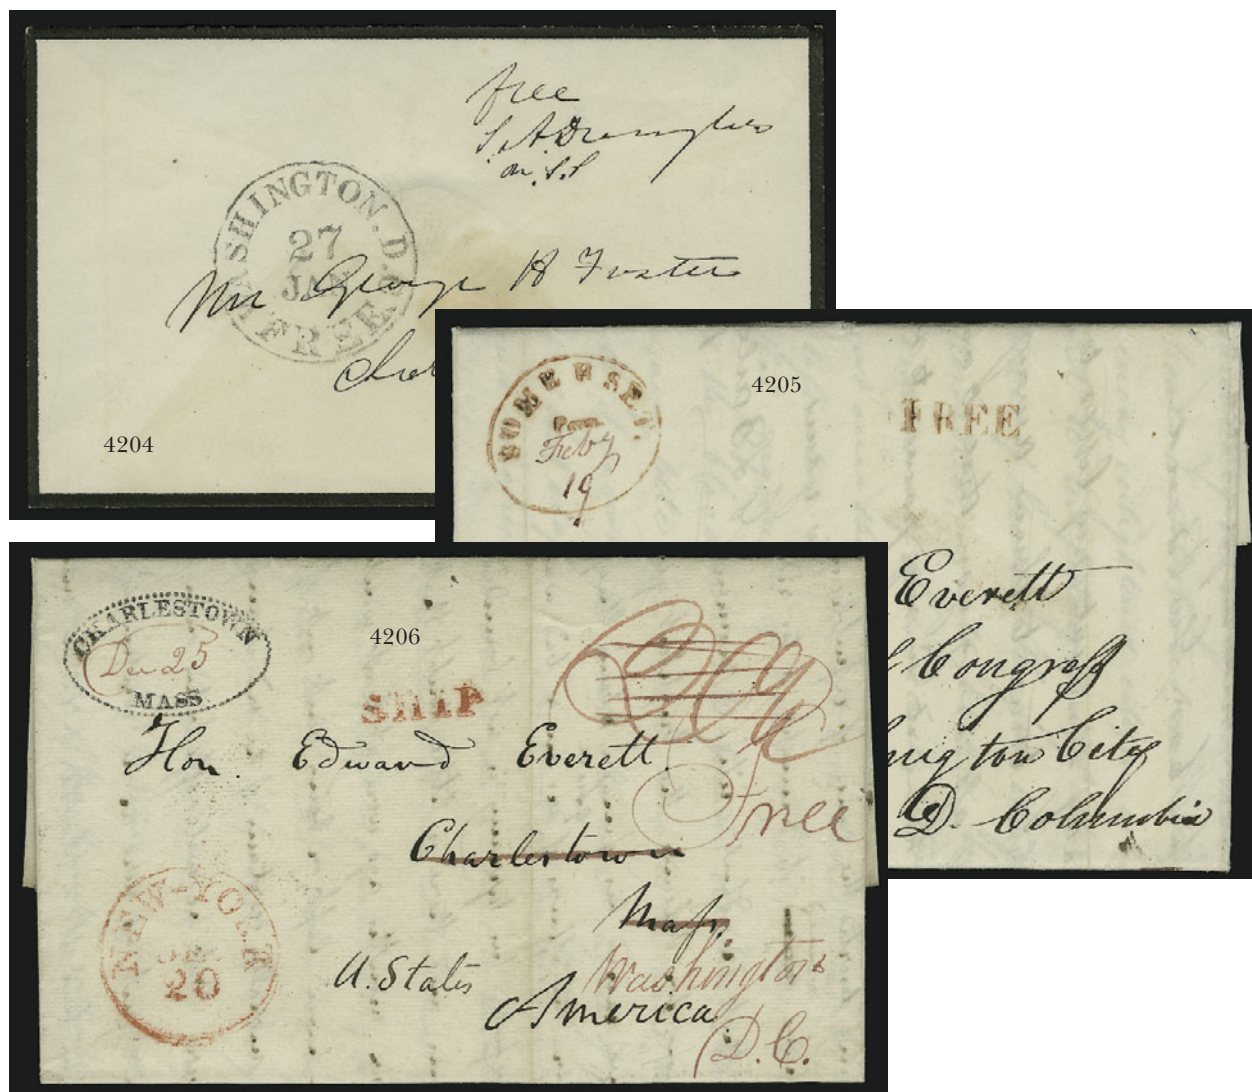 free
S. A. Douglas
U.S.S
WASHINGTON. D.C.
27
JAN
FREE
Mr George H Foster
4204
SOMERSET.
Penn
Feby
19
4205
FREE
Everett
Congress
ington City
D. Columbia
CHARLESTOWN
Dec 25
MASS
4206
SHIP
Hon. Edward Everett
Free
Charlestown
Mass.
NEW-YORK
DEC
20
U. States
Washington
America
D.C.